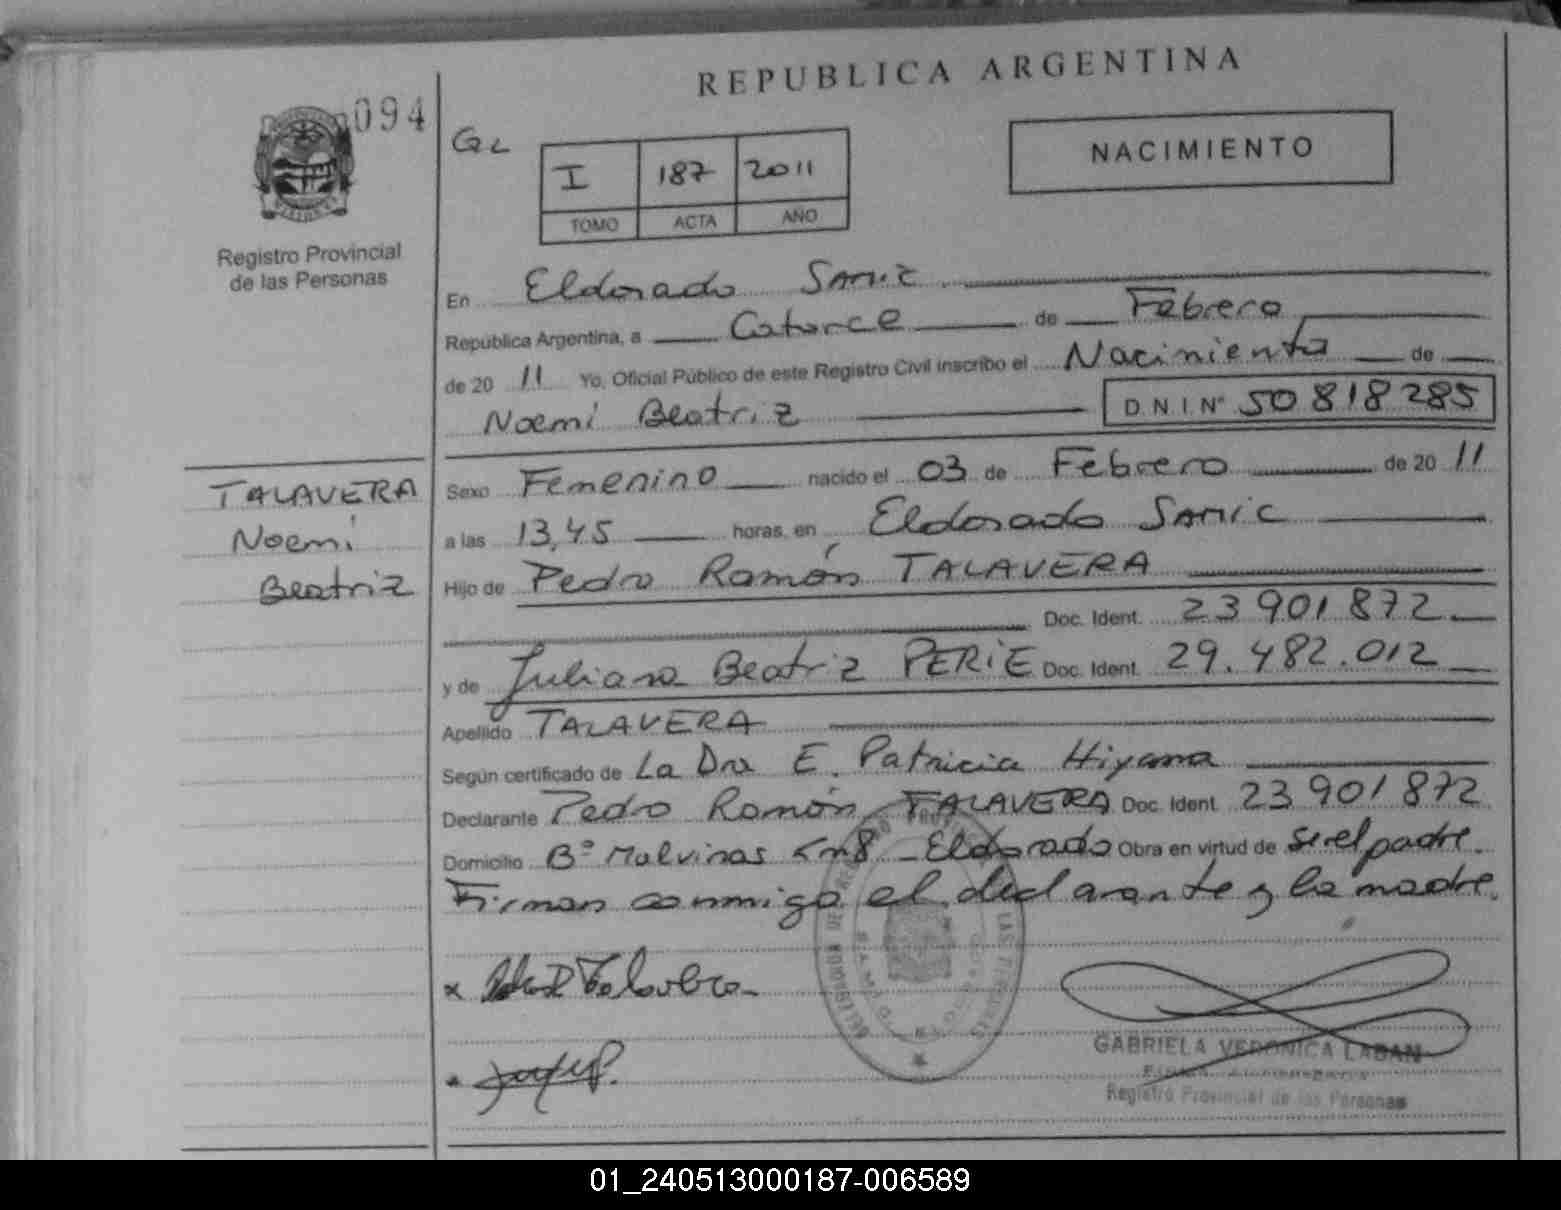 REPUBLICA ARGENTINA
094
Registro Provincial
de las Personas
I 187 2011
TOMO ACTA AÑO
NACIMIENTO
En Eldorado
República Argentina, a Catorce de Febrero
de 20 11 Yo, Oficial Público de este Registro Civil inscribo el Nacimiento de
Noemí Beatriz D.N.I. Nº 50 818 285
TALAVERA
Noemí
Beatriz
Sexo Femenino nacido el 03 de Febrero de 20 11
a las 13,45 horas, en Eldorado
Hijo de Pedro Ramón TALAVERA
Doc. Ident. 23 901 872
y de Juliana Beatriz PERIE Doc. Ident. 29.482.012
Apellido TALAVERA
Según certificado de La Dra E. Patricia Hiyama
Declarante Pedro Ramón TALAVERA Doc. Ident. 23 901 872
Domicilio Bº Malvinas Km8 - Eldorado Obra en virtud de ser el padre.
Firman conmigo el declarante y la madre.
GABRIELA VERONICA LABAN
Registro Provincial de las Personas
01_240513000187-006589